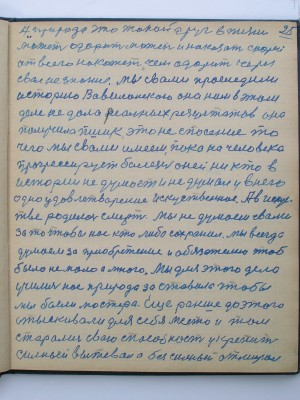 25
А природа это такой друг в жизни
может одарить может и наказать скорей
от всего накажет, чем одарит чем
своє незнание. Мы с вами проследили
историю Вавилонского она нам в этом
деле не дала реальных результатов она
получила пшик это не спасение то
чего мы с вами имеем, пока на человека
прогрессирует болезнь о ней ни кто в
истории не думает и не думал у всего
одно удовлетворение искуственное. А в
родилась смерть. Мы не думаем с вами
за то чтобы нас кто либо сохранил. Мы всегда
думаем за приобретение и обязательно чтоб
было не мало а много. Мы для этого дела
учились нас природа заставила чтобы
мы были мастера. Еще раньше до этого
отыскивали для себя место и там
старались свою способность укрепить
сильный вытевал а без сильный отмирал